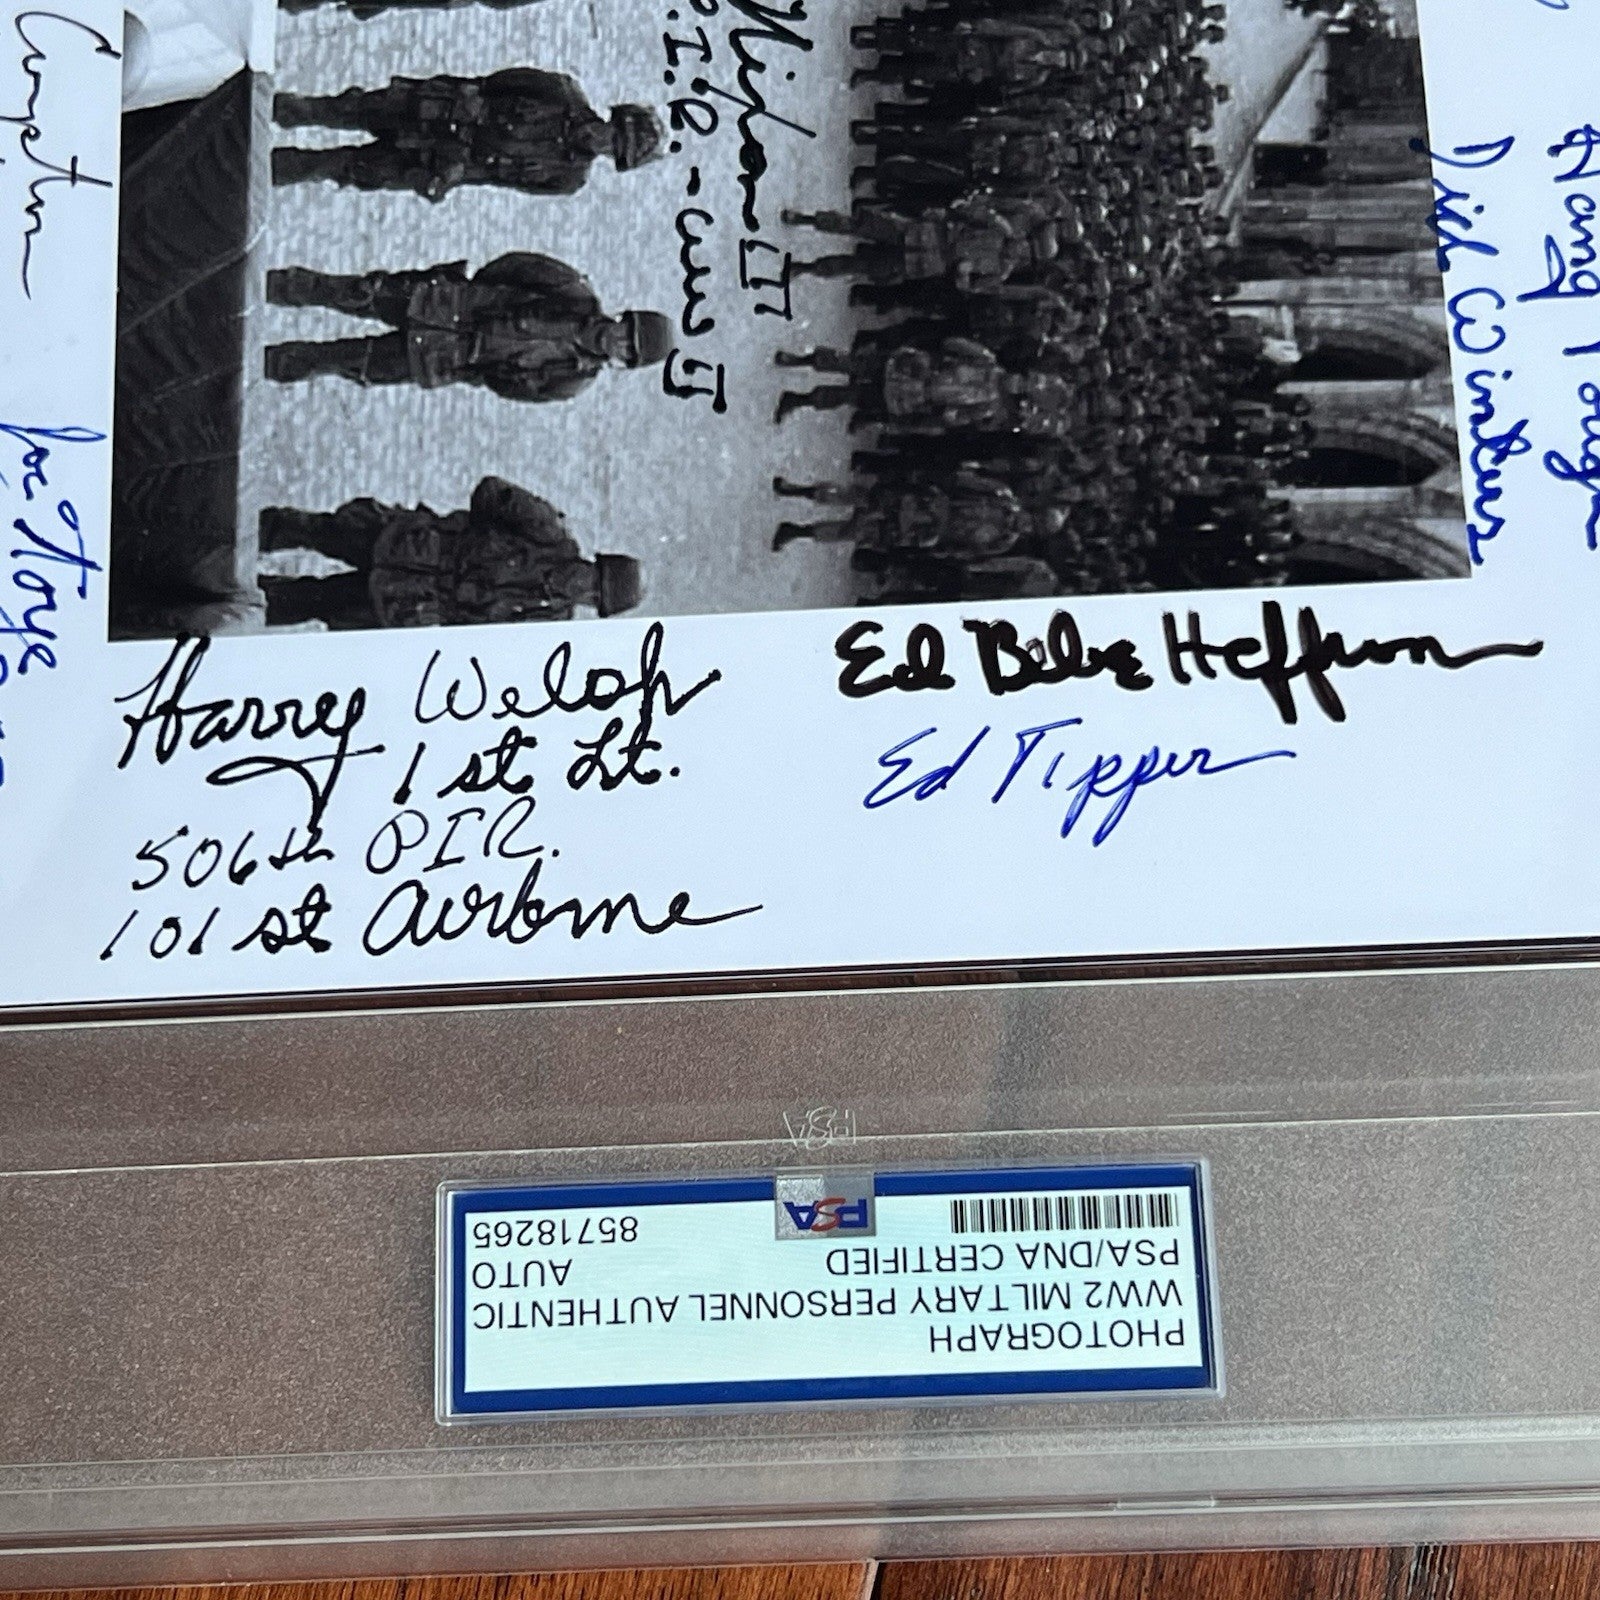 Compton
Joe Toye
P.I.R. - WW II
Dick Winters
Hang Tough
Harry Welsh
1st Lt.
506th PIR.
101st Airborne
Ed Babe Heffron
Ed Tipper
PSA
PHOTOGRAPH
WW2 MILITARY PERSONNEL AUTHENTIC
PSA/DNA CERTIFIED AUTO
85718265
PSA